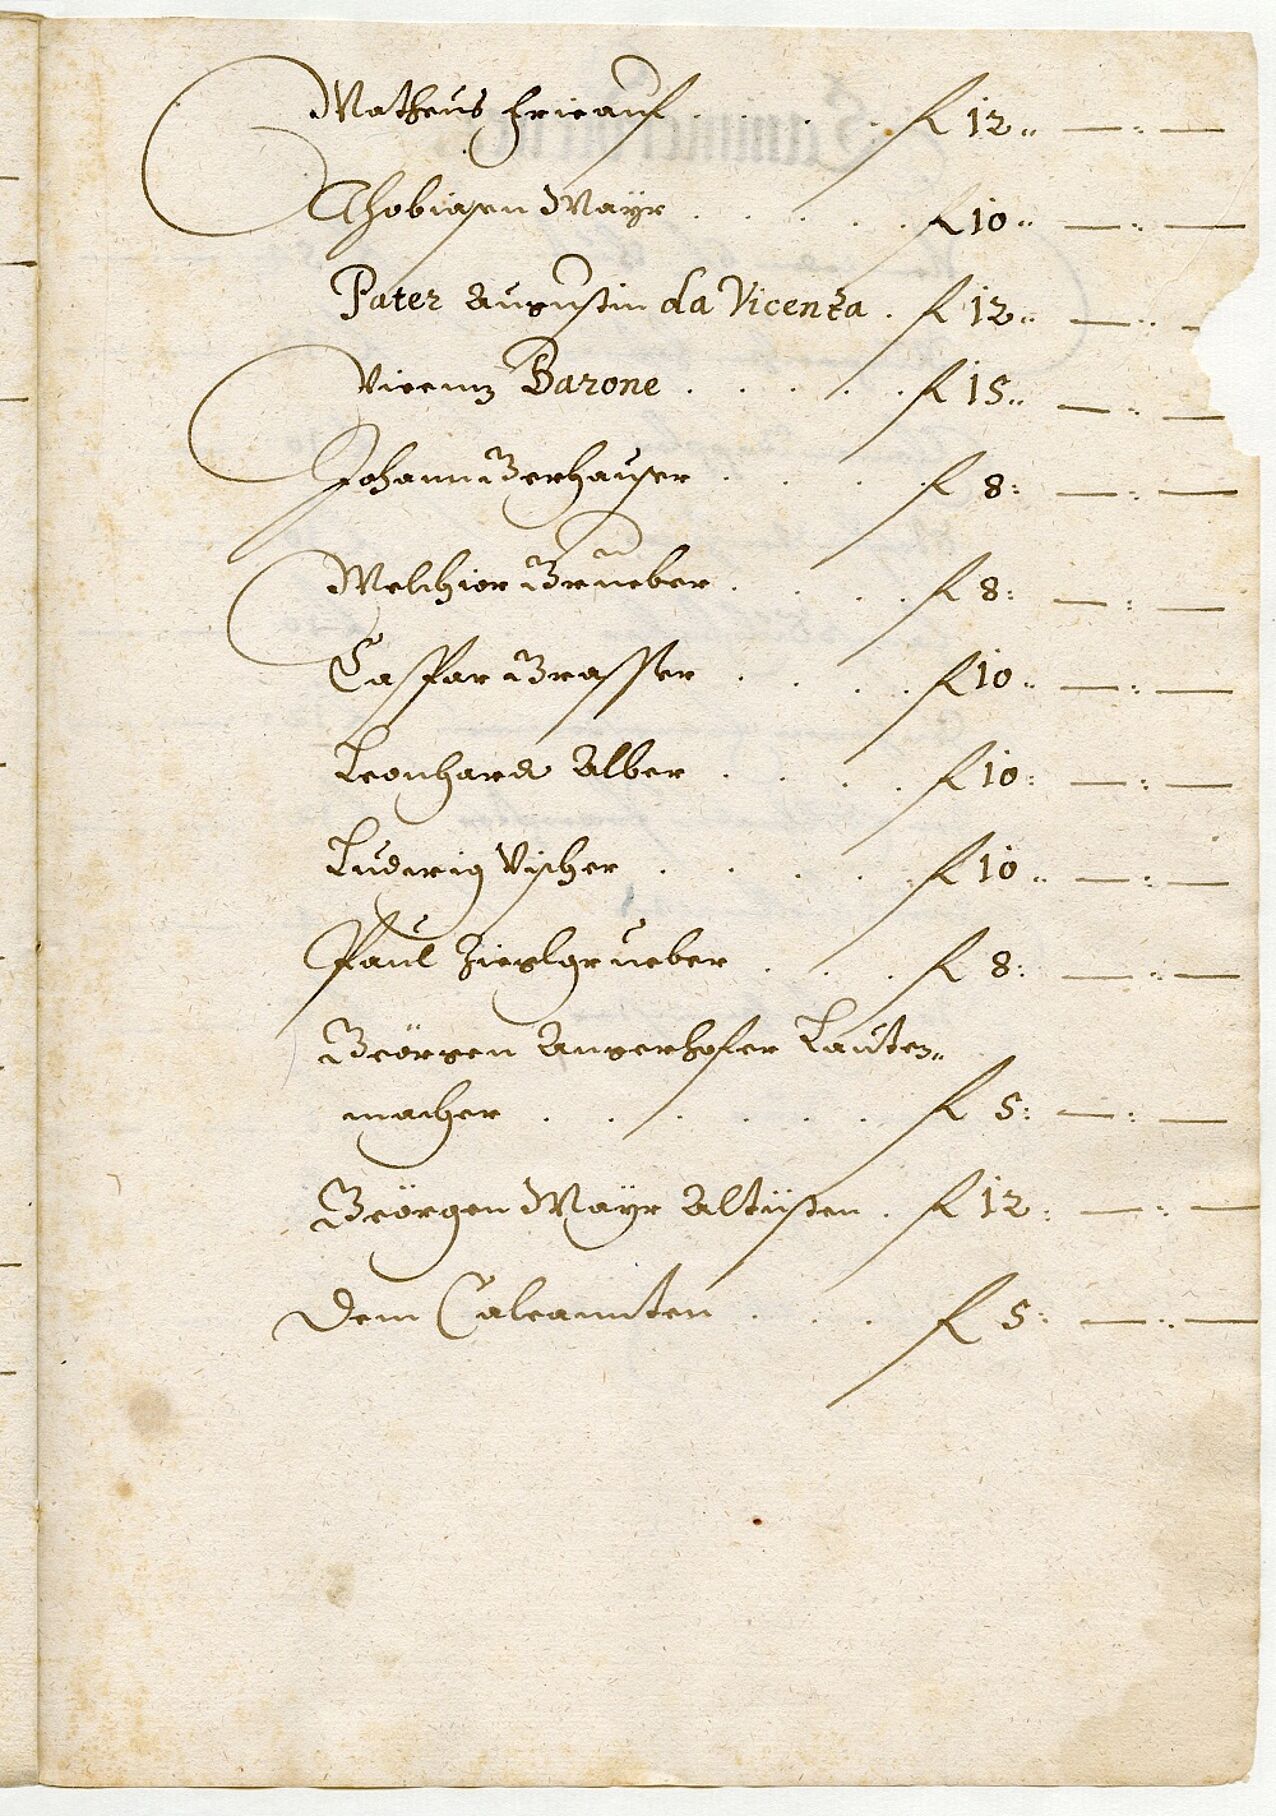 Matheus Frieauf . . . . fl 12„ — : —
Thobiasen Mayr . . . . . fl 10„ — : —
Pater Augustin da Vicenza . fl 12„ — : —
Vicenz Barone . . . . . fl 15„ — : —
Johann Gerhauser . . . . fl 8: — : —
Melchior Grueber . . . . fl 8: — : —
Caspar Grasser . . . . fl 10„ — : —
Leonhard Alber . . . . fl 10: — : —
Ludwig Vischer . . . . . fl 10„ — : —
Paul Zieglgrueber . . . fl 8: — : —
Geörgen Angerhofer Lauten„
macher . . . . . . fl 5: — : —
Geörgen Mayr Altisten . fl 12: — : —
Dem Calcannten . . . fl 5: — : —